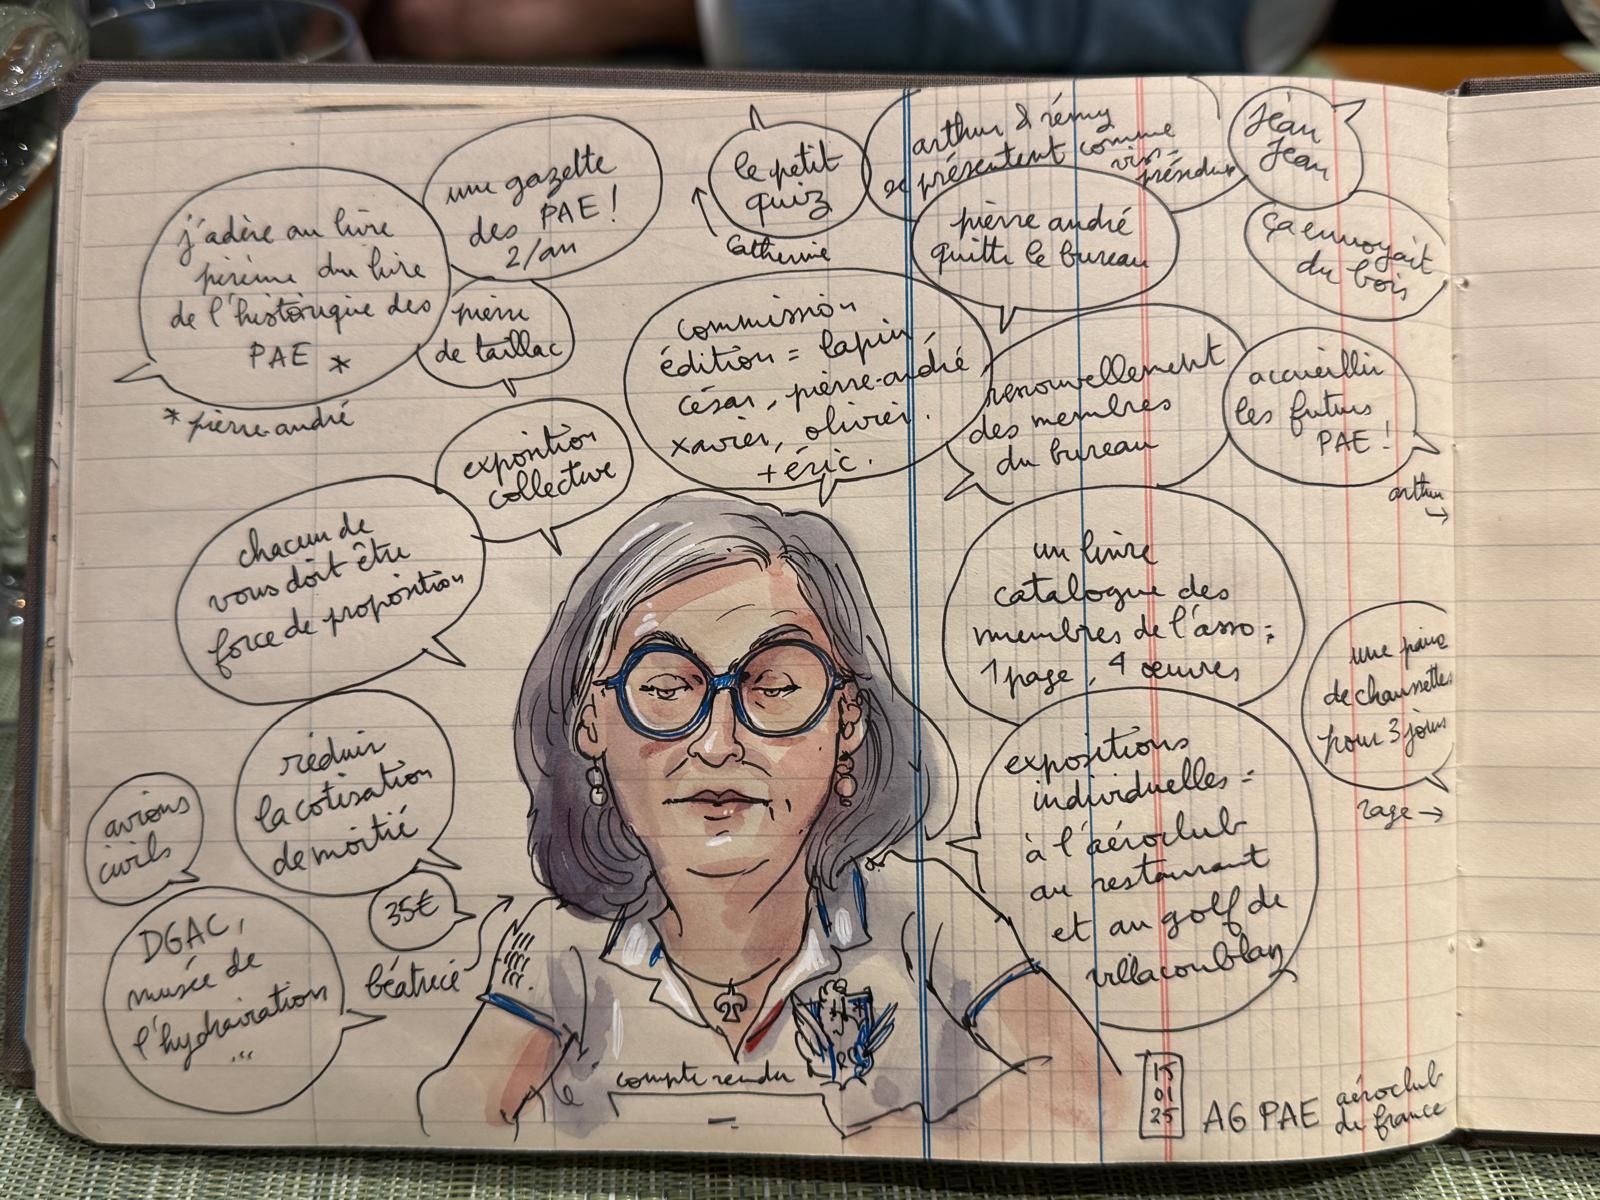 j'adère au livre
pirième du livre
de l'historique des
PAE *
* pierre-andré
une gazette
des PAE !
2/an
pierre
de taillac
le petit
quiz
Catherine
arthur & rémy
se présentent comme
vice-
présidents
Jean
Jean
pierre andré
quitte le bureau
ça envoyait
du bois
commission
édition = lapin,
césar, pierre-andré
xavier, olivier.
+ éric.
renouvellement
des membres
du bureau
accueillir
les futurs
PAE !
arthur
→
exposition
collective
chacun de
vous doit être
force de proposition
un livre
catalogue des
membres de l'asso :
1 page, 4 œuvres
une paire
de chaussettes
pour 3 jours
→
réduire
la cotisation
de moitié
avions
civils
35€
béatrice
DGAC,
musée de
l'hydraviation
...
expositions
individuelles =
à l'aéroclub
au restaurant
et au golf de
villacoublay
compte rendu
15
01
25
AG PAE aéroclub
de france